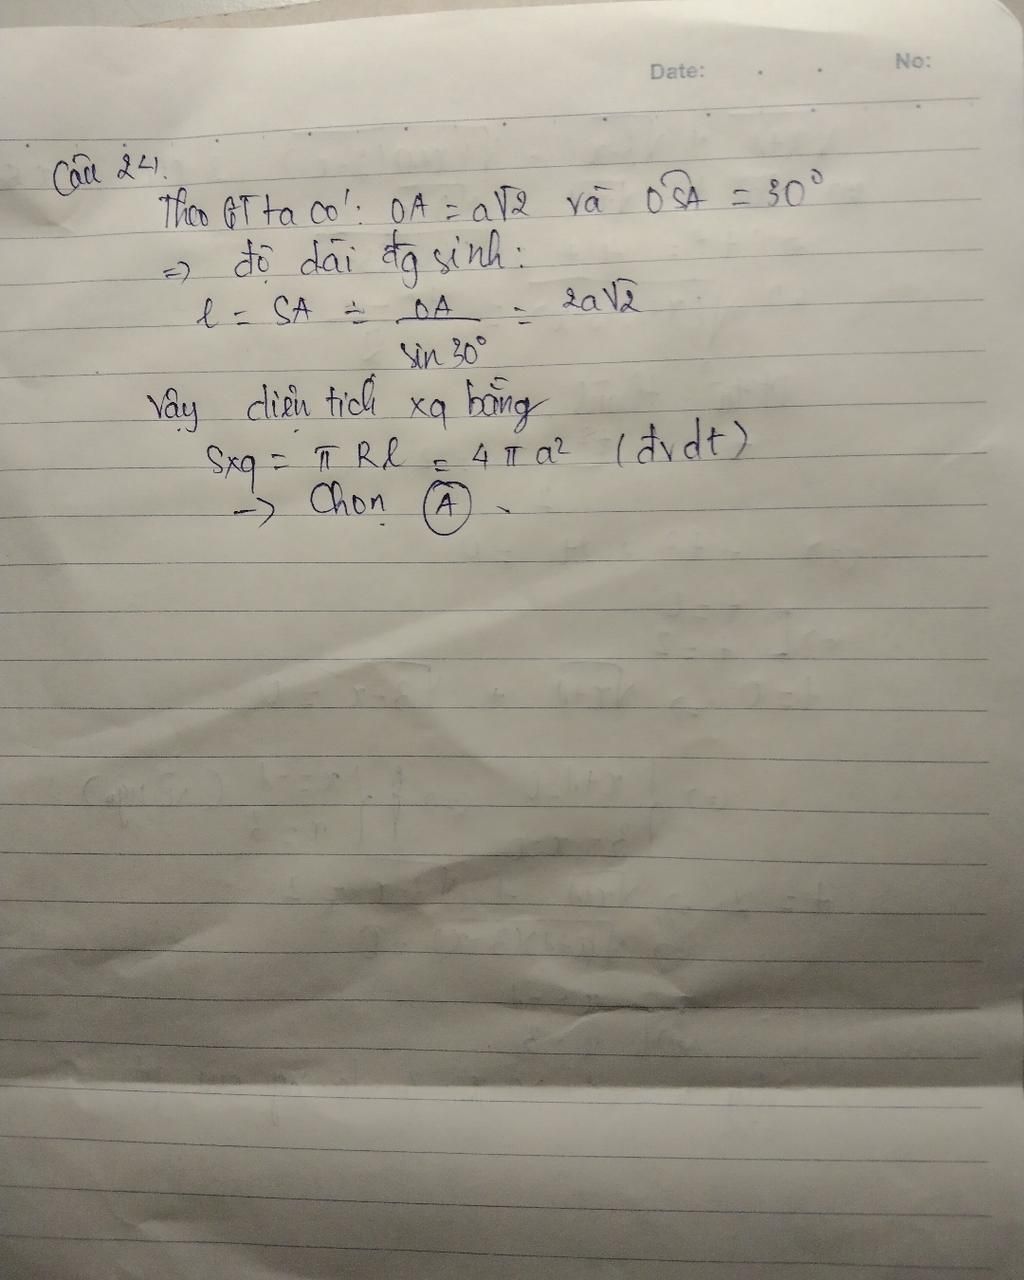 Date: . .
No:
Câu 24.
Theo GT ta có: OA = a√2 và OSA = 30°
=> độ dài đg sinh:
l = SA = OA / sin 30° = 2a√2
Vậy diện tích xq bằng
Sxq = π R l = 4 π a² (đvdt)
-> Chọn A